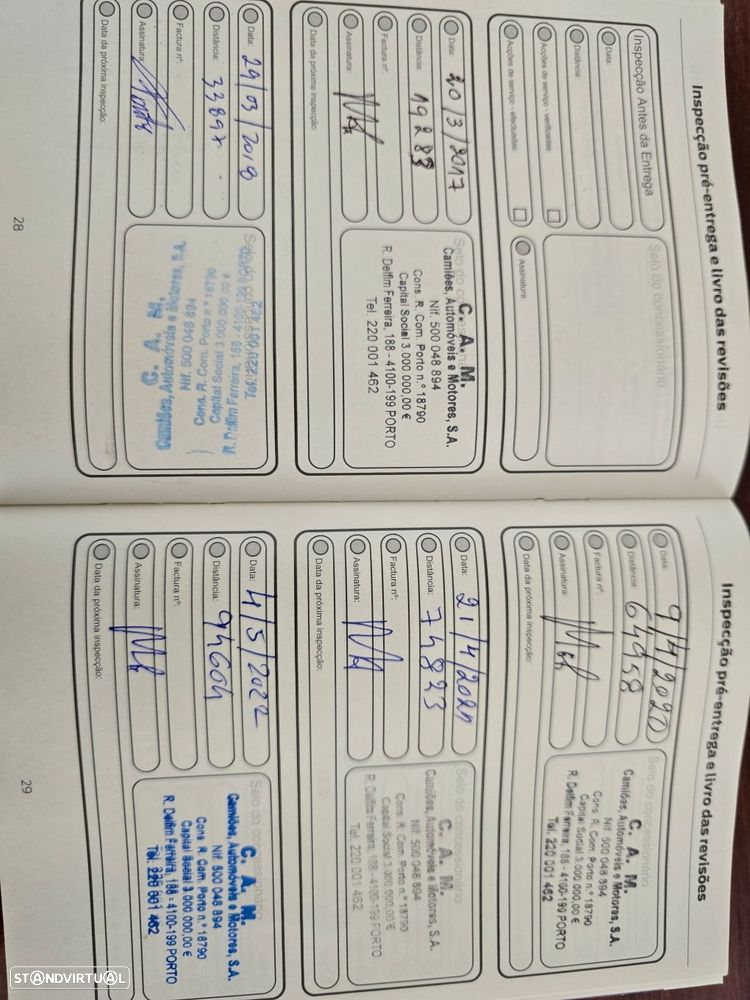 Inspecção pré-entrega e livro das revisões
Inspecção Antes da Entrega
Data:
Distância:
Acções de serviço - verificadas:
Acções de serviço - efectuadas:
Assinatura:
Selo do concessionário
Data: 20/3/2017
Distância: 19283
Factura nº:
Assinatura:
Data da próxima inspecção:
Selo do concessionário
C. A. M.
Camiões, Automóveis e Motores, S.A.
Nif. 500 048 894
Cons. R. Com. Porto n.º 18790
Capital Social 3.000.000,00 €
R. Delfim Ferreira, 188 - 4100-199 PORTO
Tel. 220 001 462
Data: 29/03/2018
Distância: 33897
Factura nº:
Assinatura:
Data da próxima inspecção:
Selo do concessionário
C. A. M.
Camiões, Automóveis e Motores, S.A.
Nif. 500 048 894
Cons. R. Com. Porto n.º 18790
Capital Social 3.000.000,00 €
Tel. 220 001 462
28
Inspecção pré-entrega e livro das revisões
Data: 9/4/2020
Distância: 64958
Factura nº:
Assinatura:
Data da próxima inspecção:
Selo do concessionário
C. A. M.
Camiões, Automóveis e Motores, S.A.
Nif. 500 048 894
Cons. R. Com. Porto n.º 18790
Capital Social 3.000.000,00 €
R. Delfim Ferreira, 188 - 4100-199 PORTO
Tel. 220 001 462
Data: 21/4/2021
Distância: 74823
Factura nº:
Assinatura:
Data da próxima inspecção:
Selo do concessionário
C. A. M.
Camiões, Automóveis e Motores, S.A.
Nif. 500 048 894
Cons. R. Com. Porto n.º 18790
Capital Social 3.000.000,00 €
R. Delfim Ferreira, 188 - 4100-199 PORTO
Tel. 220 001 462
Data: 4/5/2022
Distância: 94604
Factura nº:
Assinatura:
Data da próxima inspecção:
Selo do concessionário
C. A. M.
Camiões, Automóveis e Motores, S.A.
Nif. 500 048 894
Cons. R. Com. Porto n.º 18790
Capital Social 3.000.000,00 €
R. Delfim Ferreira, 188 - 4100-199 PORTO
Tel. 220 001 462
29
STANDVIRTUAL